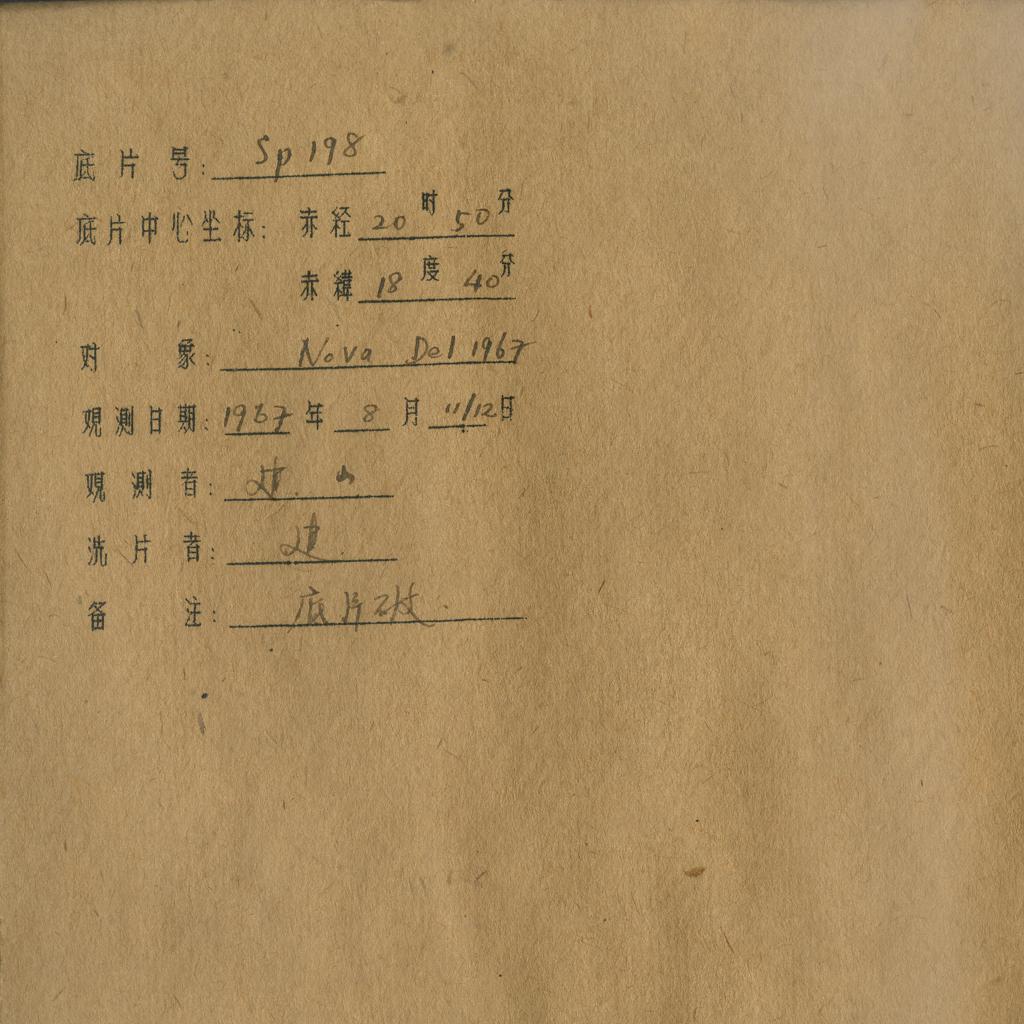 底片号: Sp 198
底片中心坐标: 赤经 20 时 50 分
赤緯 18 度 40 分
对象: Nova Del 1967
观測日期: 1967 年 8 月 11/12 日
观測者: 建. 山
洗片者: 建.
备注: 底片破.